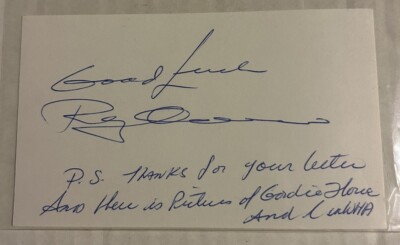 Good Luck
Ray
P.S. THANKS for your letter
And there is Picture of Gordie Howe
And in WHA